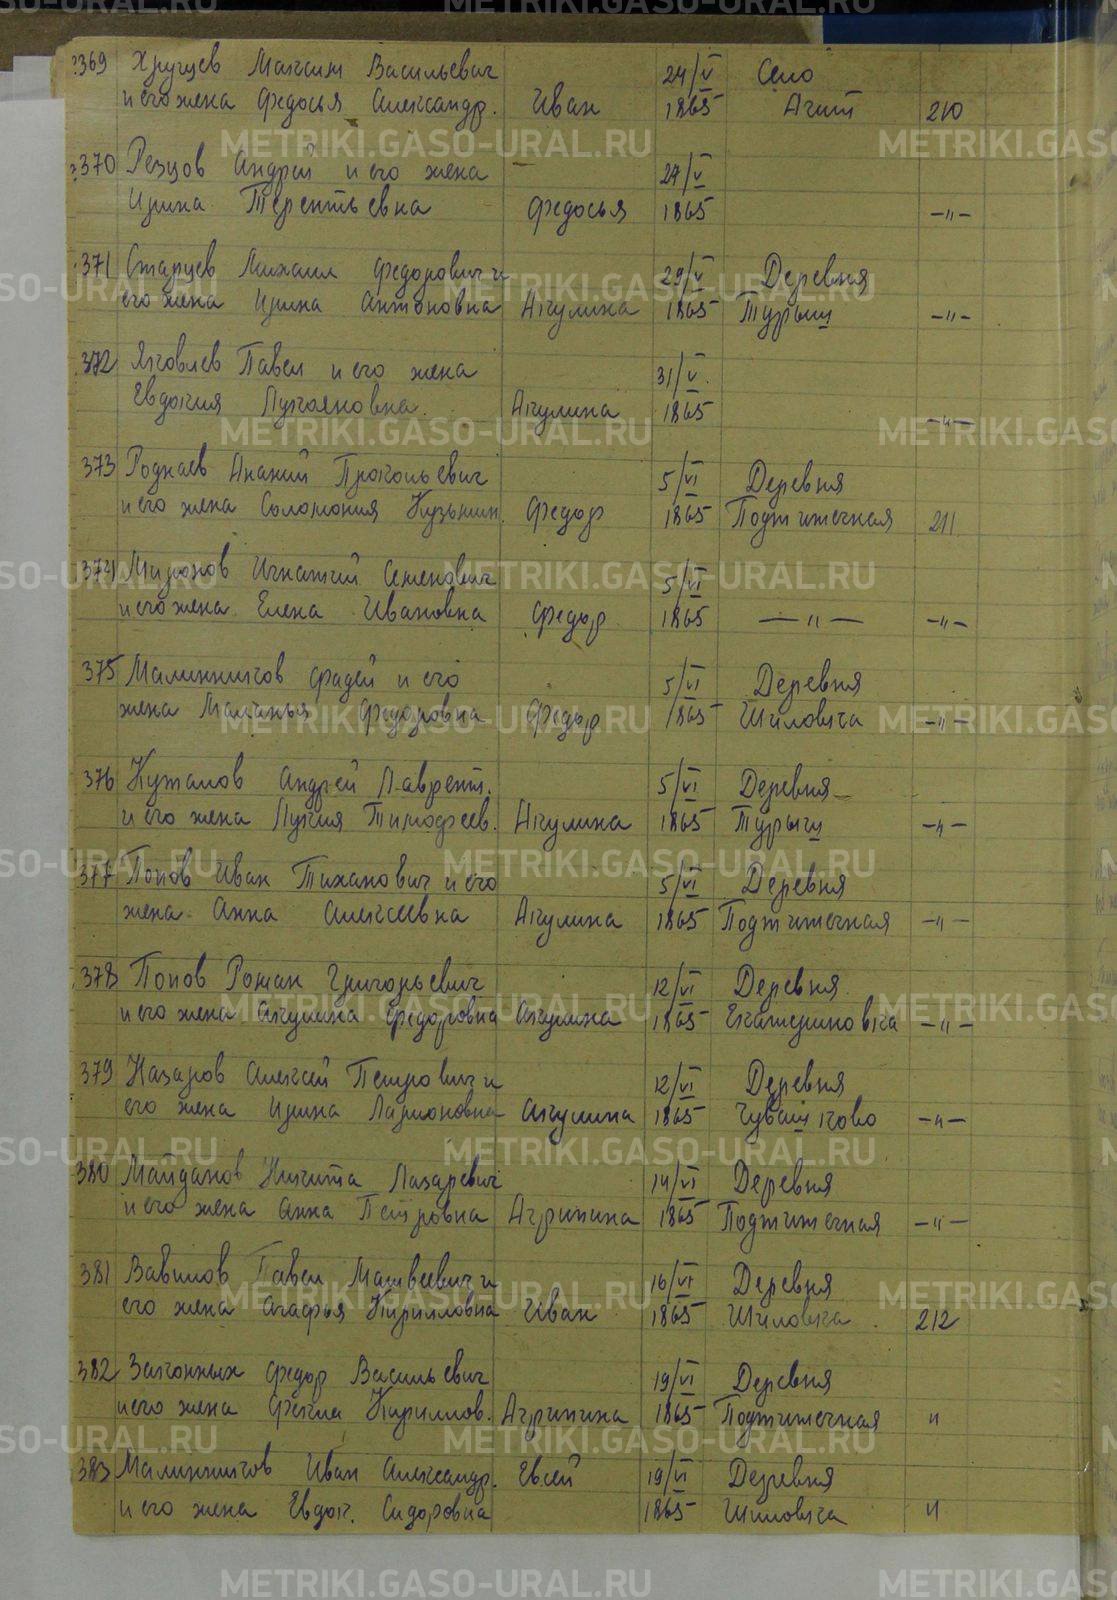 369 Хрущев Максим Васильевич 24/V Село
и его жена Федосья Александр. Иван 1865 Ачит 210
370 Резцов Андрей и его жена 27/V
Ирина Терентьевна Федосья 1865 -"-
371 Старцев Михаил Федорович и 29/V Деревня
его жена Ирина Антоновна Акулина 1865 Турыш -"-
372 Яковлев Павел и его жена 31/V
Евдокия Лукояновна Акулина 1865 -"-
373 Роднаев Ананий Прокопьевич 5/VI Деревня
и его жена Соломония Кузьмин. Федор 1865 Подтитечная 211
374 Миронов Игнатий Семенович 5/VI
и его жена Елена Ивановна Федор 1865 -"- -"-
375 Малинников Фадей и его 5/VI Деревня
жена Маланья Федоровна Федор 1865 Шиловка -"-
376 Кужалов Андрей Лаврент. 5/VI Деревня
и его жена Лукия Тимофеев. Акулина 1865 Турыш -"-
377 Попов Иван Тиханович и его 5/VI Деревня
жена Анна Алексеевна Акулина 1865 Подтитечная -"-
378 Попов Роман Григорьевич 12/VI Деревня
и его жена Акулина Федоровна Акулина 1865 Екатериновка -"-
379 Назаров Алексей Петрович и 12/VI Деревня
его жена Ирина Ларионовна Акулина 1865 Чувашково -"-
380 Майданов Никита Лазаревич 14/VI Деревня
и его жена Анна Петровна Агрипина 1865 Подтитечная -"-
381 Вавилов Павел Матвеевич и 16/VI Деревня
его жена Агафья Кирилловна Иван 1865 Шиловка 212
382 Законных Федор Васильевич 19/VI Деревня
и его жена Фекла Кириллов. Агрипина 1865 Подтитечная "
383 Малинников Иван Александр. Евсей 19/VI Деревня
и его жена Евдок. Сидоровна 1865 Шиловка "
METRIKI.GASO-URAL.RU